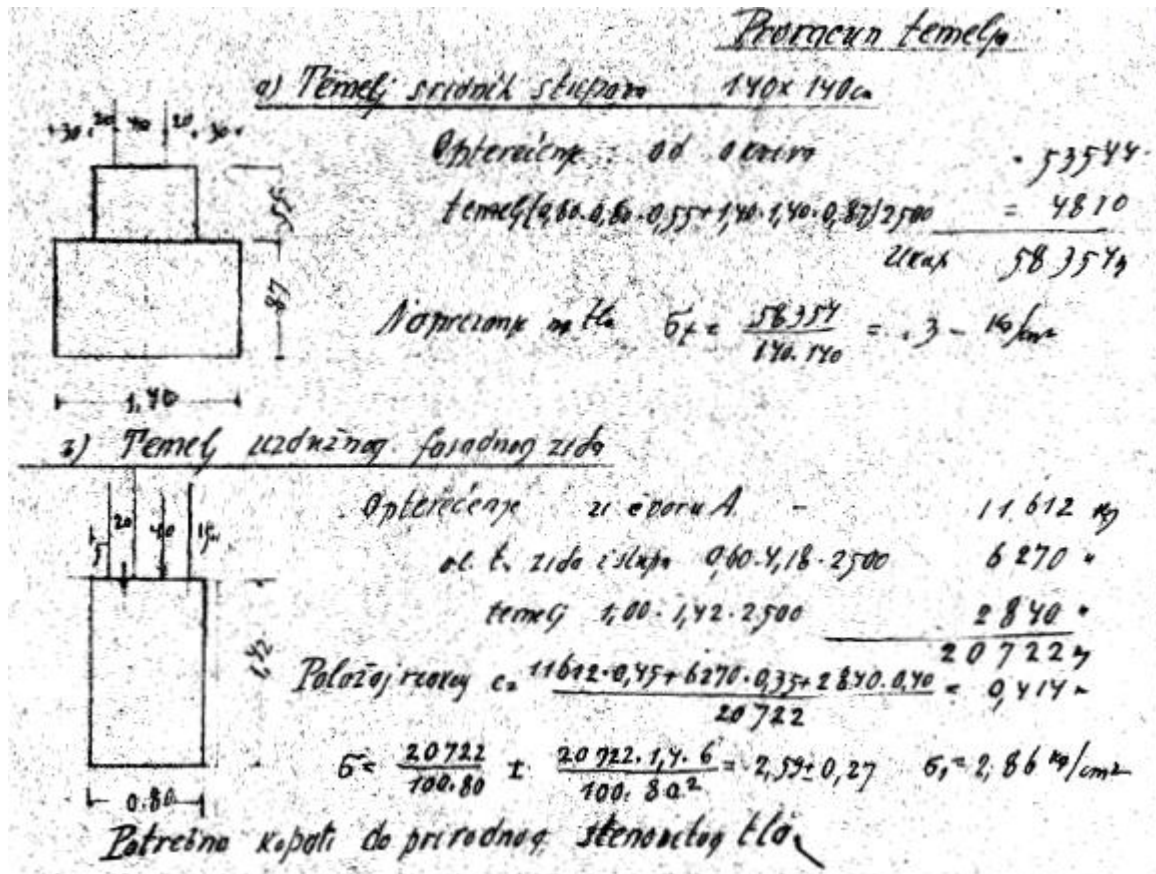 Proračun temelja
a) Temelj srednih stupova 140x140cm
30 20 40 20 30
Opterećenje: od okvira 53544
55
temelj (0,80.0,80.0,55+1,40.1,40.0,87)2500 = 4810
Ukup 58354
87
Naprezanje na tlo σt = 58354 / 140.140 = 3 - kg/cm²
1,40
b) Temelj uzdužnog fasadnog zida
5 20 40 15
Opterećenje iz čvoru A - 11.612 kg
vl. t. zida i stupa 0,60.4,18.2500 6270 "
temelj 1,00.1,42.2500 2840 "
1,42
20722
Položaj e= 11612.0,45+6270.0,35+2840.0,40 / 20722 = 0,414
σ= 20722 / 100.80 ± 20722.1,4.6 / 100.80² = 2,59±0,27 σ₁=2,86 kg/cm²
0.80
Potrebno kopati do prirodnog stenovitog tla